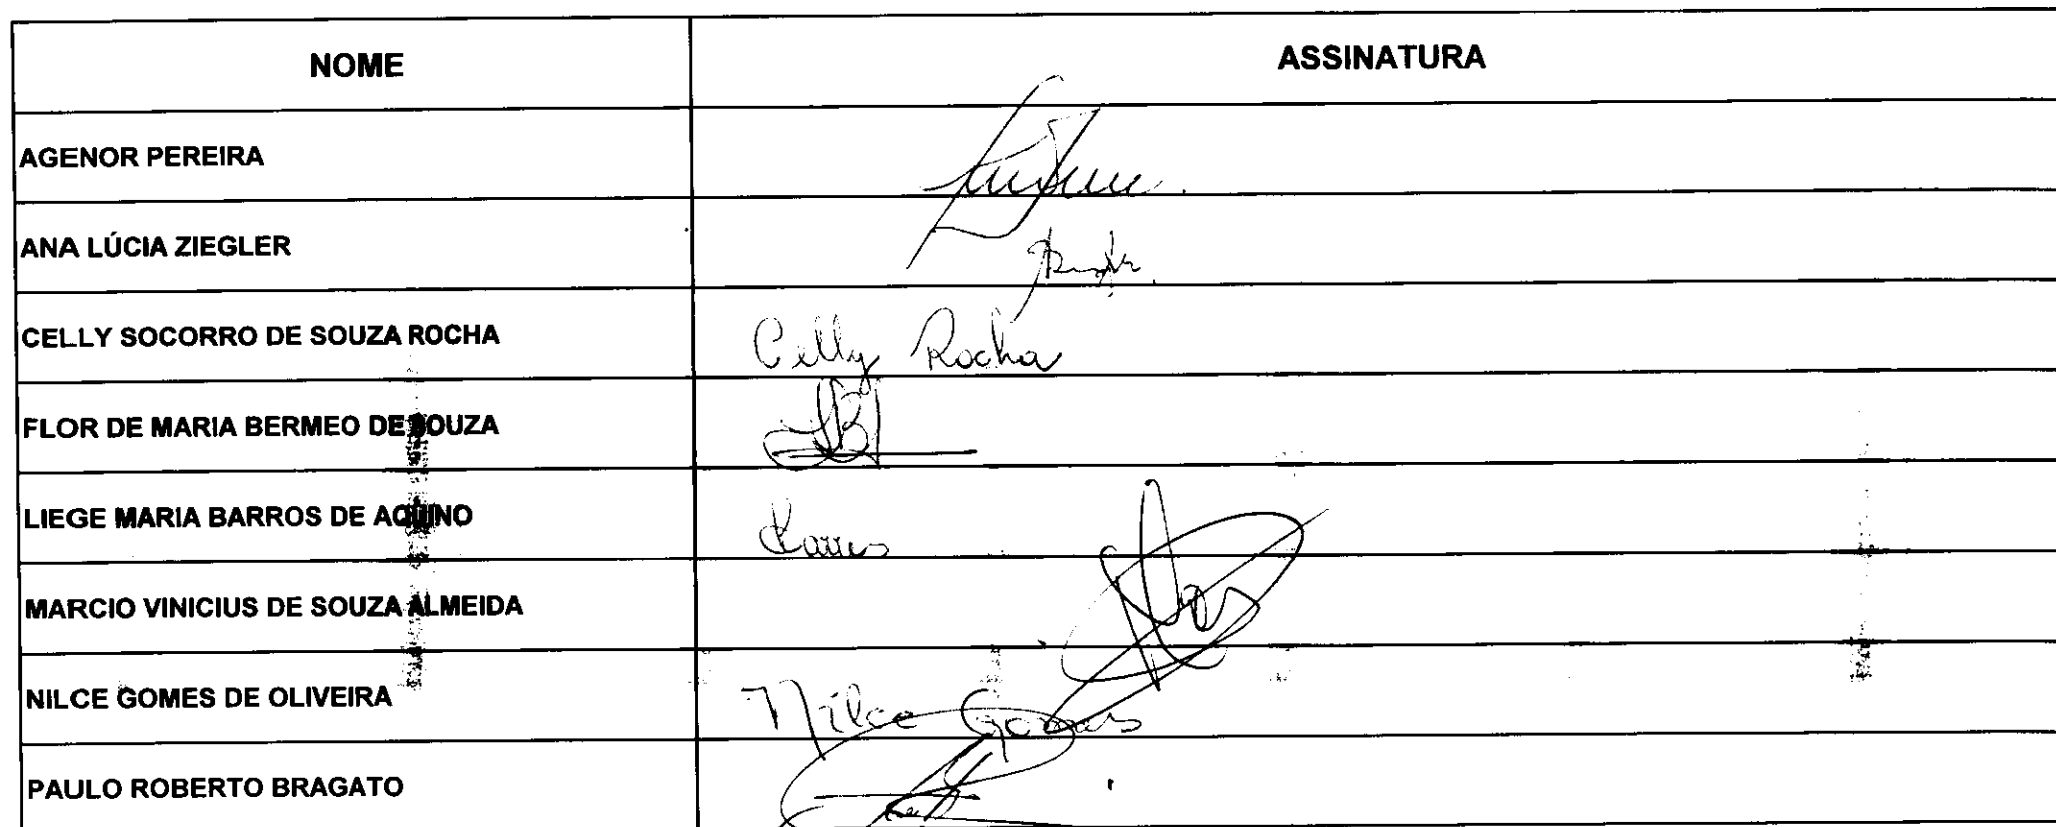 NOME ASSINATURA
AGENOR PEREIRA
ANA LÚCIA ZIEGLER
CELLY SOCORRO DE SOUZA ROCHA Celly Rocha
FLOR DE MARIA BERMEO DE SOUZA
LIEGE MARIA BARROS DE AQUINO
MARCIO VINICIUS DE SOUZA ALMEIDA
NILCE GOMES DE OLIVEIRA Nilce Gomes
PAULO ROBERTO BRAGATO